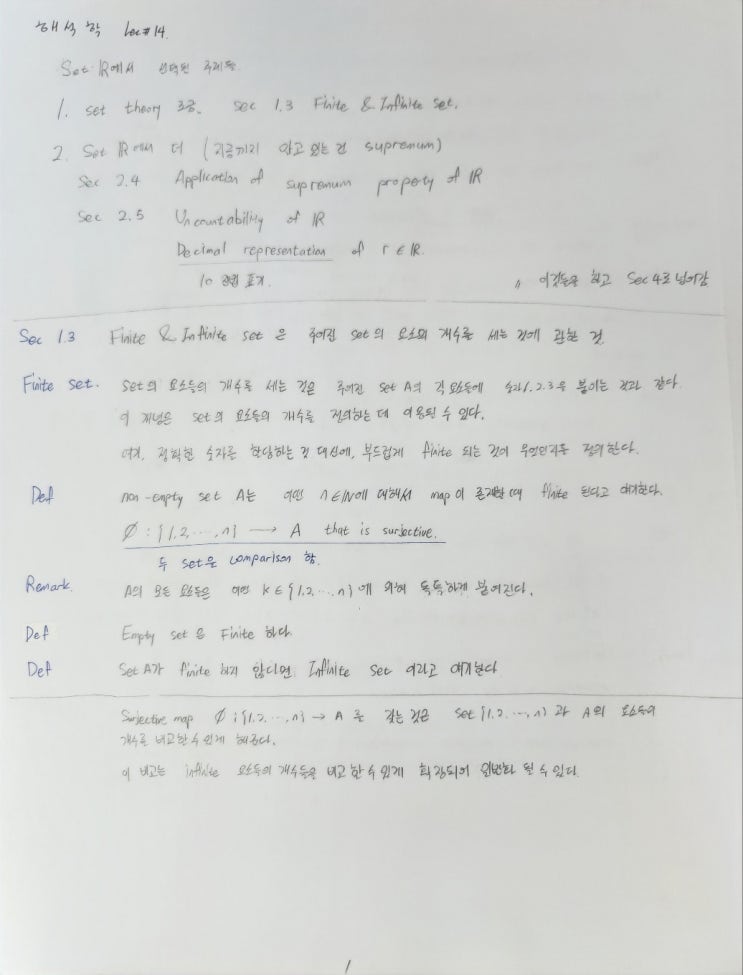 해석학 Lec#14.
Set ℝ에서 선택된 주제들
1. set theory 조금. Sec 1.3 Finite & Infinite set.
2. Set ℝ에서 더 (지금까지 알고 있는 건 supremum)
Sec 2.4 Application of supremum property of ℝ
Sec 2.5 Uncountability of ℝ
Decimal representation of r ∈ ℝ.
10진법 표기. 이것들을 하고 Sec 4로 넘어감
Sec 1.3 Finite & Infinite set 은 주어진 set의 요소의 개수를 세는 것에 관한 것.
Finite set. Set의 요소들의 개수를 세는 것은 주어진 set A의 각 요소들에 숫자 1.2.3을 붙이는 것과 같다.
이 개념은 set의 요소들의 개수를 정의하는 데 이용될 수 있다.
여기, 정확한 숫자를 할당하는 것 대신에, 부드럽게 finite 되는 것이 무엇인지를 정의한다.
Def non-empty set A는 어떤 n∈ℕ에 대해서 map이 존재할 때 finite 된다고 얘기한다.
∅ : {1,2,…,n} → A that is surjective.
두 set을 comparison 함.
Remark. A의 모든 요소들은 어떤 k∈{1.2.…,n}에 의해 똑똑하게 붙여진다.
Def Empty set은 Finite 하다.
Def Set A가 finite 하지 않다면 Infinite set 이라고 얘기한다
Surjective map ∅ : {1,2,…,n} → A 를 갖는 것은 set {1,2,…,n} 과 A의 요소들의
개수를 비교할 수 있게 해준다.
이 비교는 infinite 요소들의 개수들을 비교할 수 있게 확장되어 일반화 될 수 있다.
1